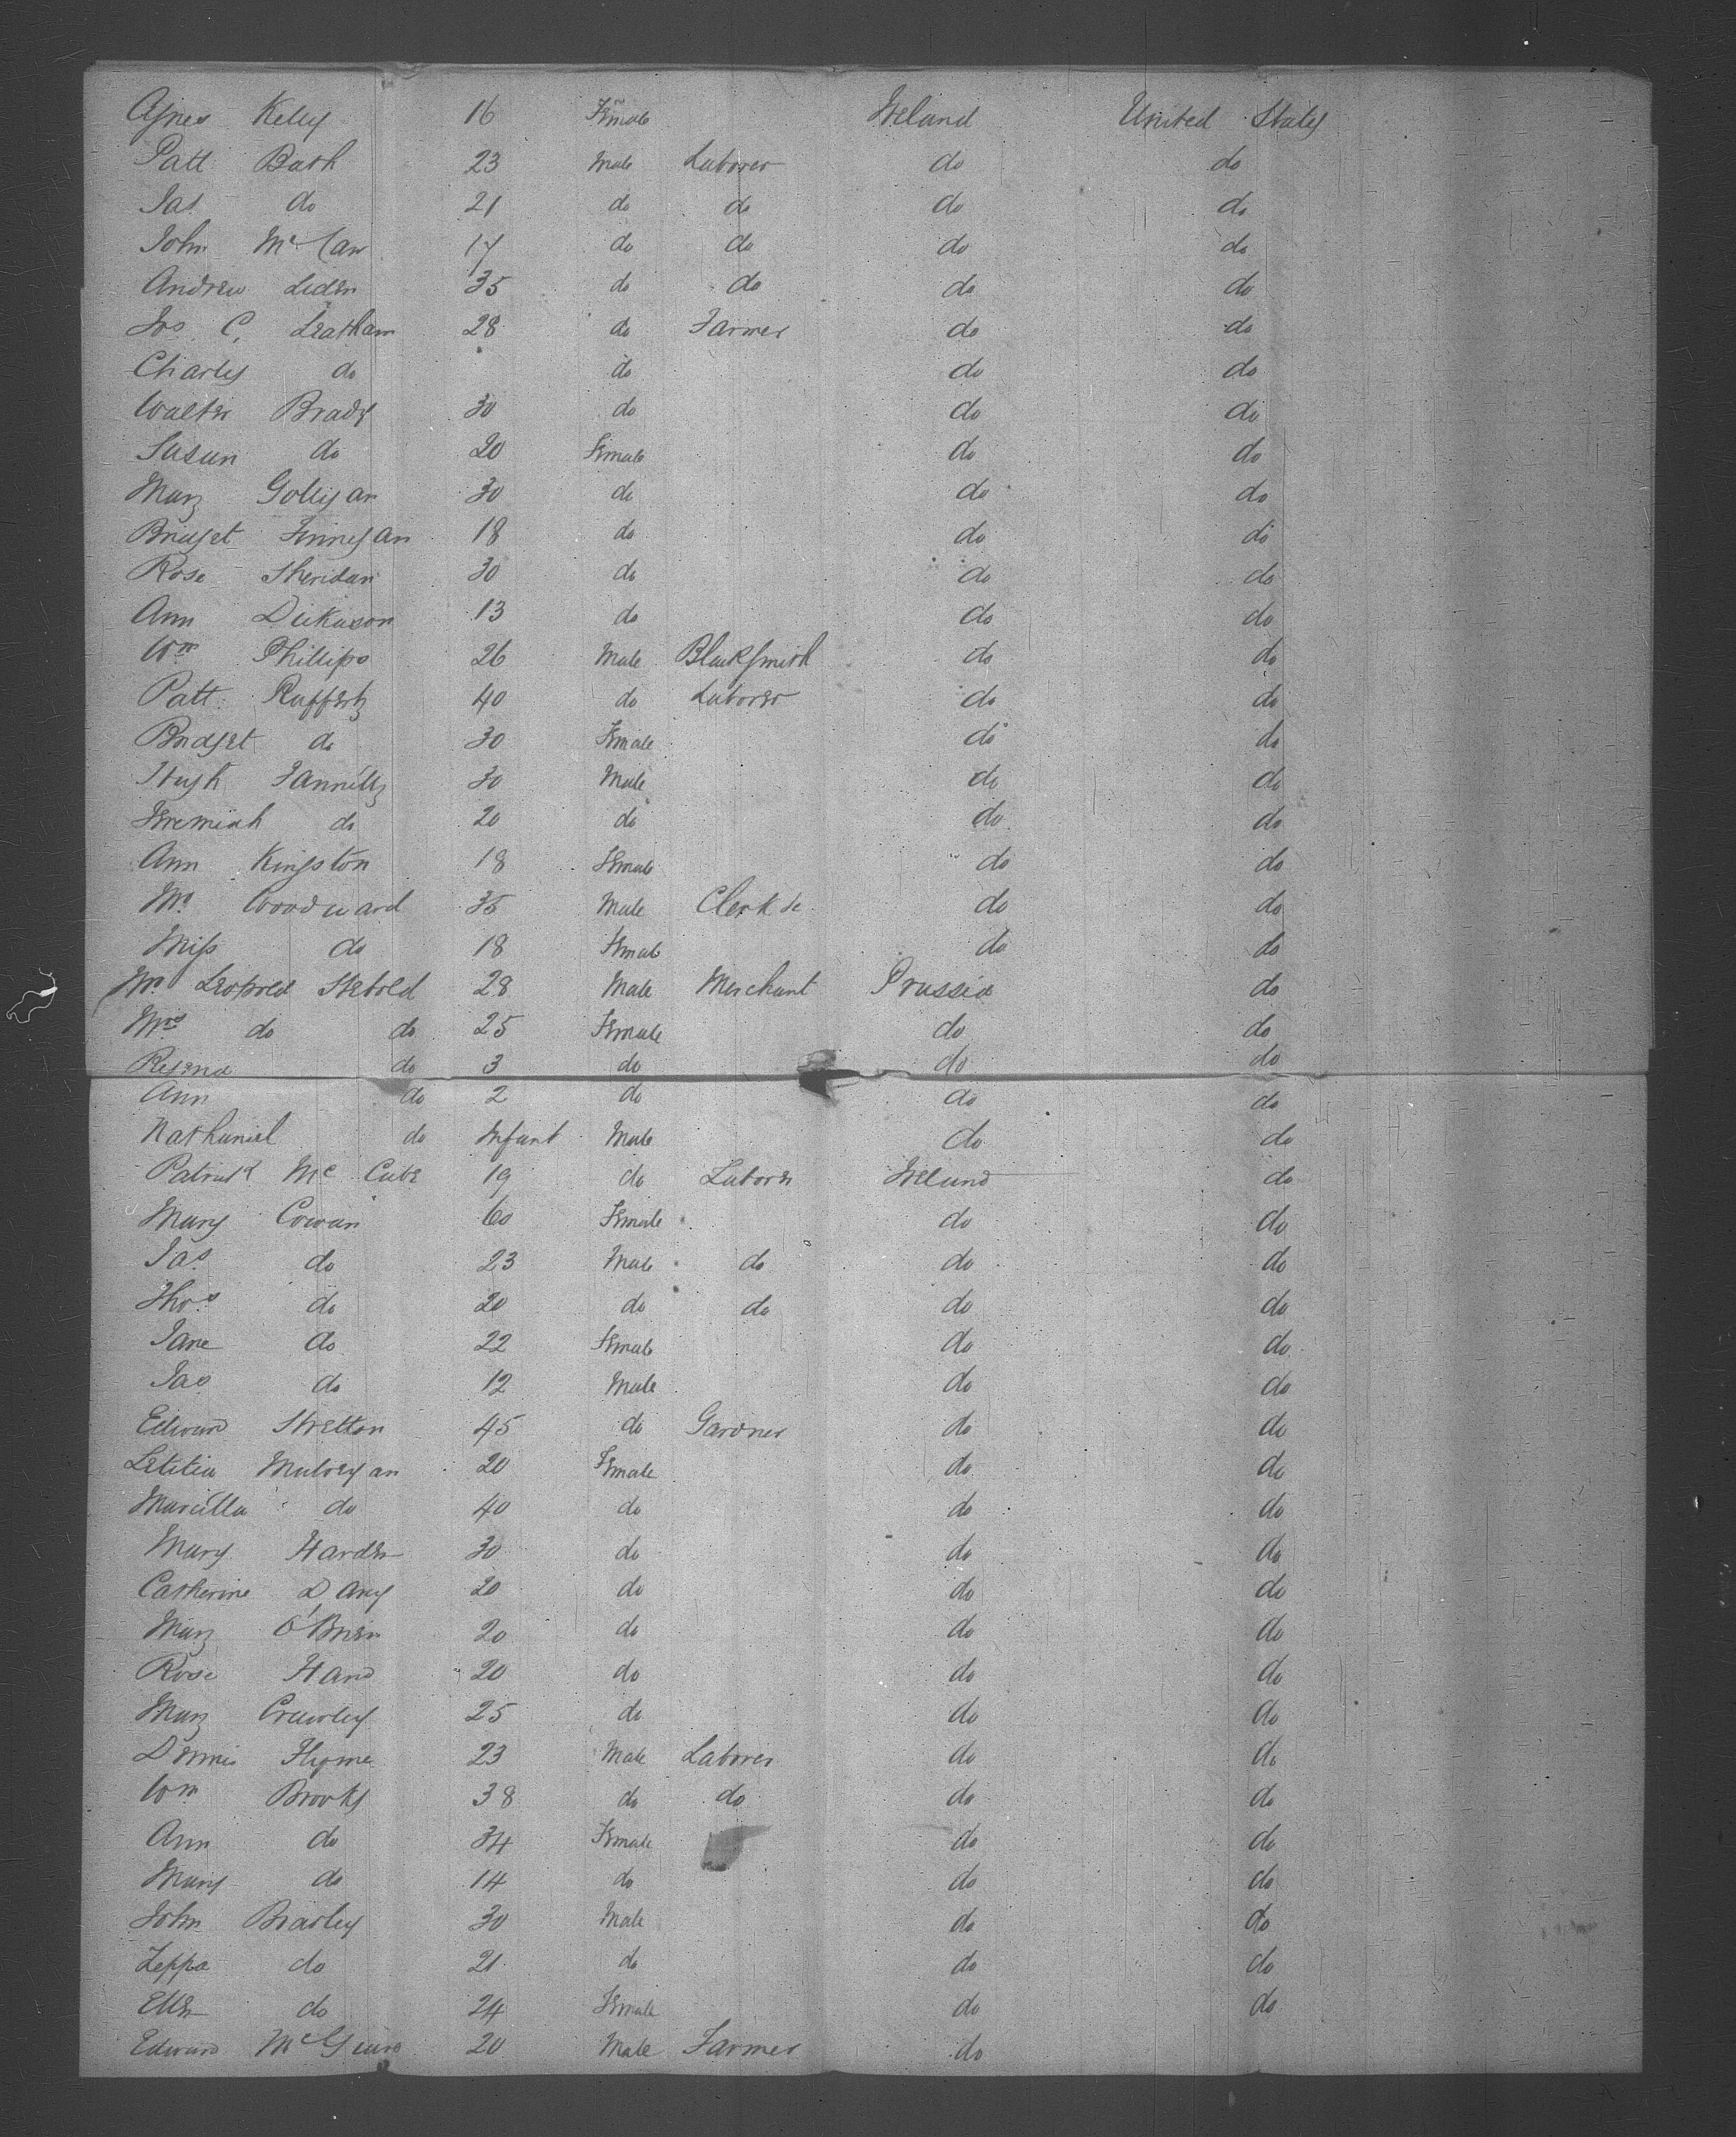 Agnes Kelly 16 Female Ireland United States
Patt Bath 23 Male Laborer do do
Jas do 21 do do do do
John McCan 17 do do do do
Andrew Liden 35 do do do do
Jos C. Leatham 28 do Farmer do do
Charles do do do do
Walter Brady 30 do do do
Susan do 20 Female do do
Mary Golligan 30 do do do
Bridget Finnegan 18 do do do
Rose Sheridan 30 do do do
Ann Dickuson 13 do do do
Wm Phillips 26 Male Blacksmith do do
Patt Rafferty 40 do Laborer do do
Bridget do 30 Female do do
Hugh 30 Male do do
Jeremiah do 20 do do do
Ann Kingston 18 Female do do
Mr Woodward 35 Male Clerk do do
Miss do 18 Female do do
Mr Leopold Stebold 28 Male Merchant Prussia do
Mrs do do 25 Female do do
Regena do 3 do do do
Ann do 2 do do do
Nathaniel do Infant Male do do
Patrick McCabe 19 do Laborer Ireland do
Mary Cowan 60 Female do do
Jas. do 23 Male do do do
Thos do 20 do do do do
Jane do 22 Female do do
Jas do 12 Male do do
Edward Stretton 45 do Gardner do do
Letitia Mulvegan 20 Female do do
Marcella do 40 do do do
Mary Harden 30 do do do
Catherine Darcy 20 do do do
Mary O'Brien 20 do do do
Rose Hand 20 do do do
Mary Crawley 25 do do do
Dennis 23 Male Laborer do do
Wm Brooks 38 do do do do
Ann do 34 Female do do
Mary do 14 do do do
John Brarley 30 Male do do
Zeppa do 21 do do do
Ellen do 24 Female do do
Edward McGuire 20 Male Farmer do